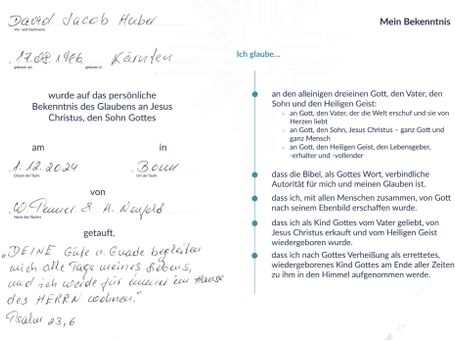 David Jacob Huber
Vor- und Nachname
17.08.1966 Kärnten
geboren am geboren in
wurde auf das persönliche
Bekenntnis des Glaubens an Jesus
Christus, den Sohn Gottes
am in
1.12.2024 Bonn
Datum der Taufe Ort der Taufe
von
W. Penner & A. Neufeld
Name des Täufers
getauft.
„DEINE Güte u. Gnade begleiten
mich alle Tage meines Lebens,
und ich werde für immer im Hause
des HERRN wohnen."
Psalm 23,6
Mein Bekenntnis
Ich glaube...
an den alleinigen dreieinen Gott, den Vater, den
Sohn und den Heiligen Geist:
an Gott, den Vater, der die Welt erschuf und sie von
Herzen liebt
an Gott, den Sohn, Jesus Christus – ganz Gott und
ganz Mensch
an Gott, den Heiligen Geist, den Lebensgeber,
-erhalter und -vollender
dass die Bibel, als Gottes Wort, verbindliche
Autorität für mich und meinen Glauben ist.
dass ich, mit allen Menschen zusammen, von Gott
nach seinem Ebenbild erschaffen wurde.
dass ich als Kind Gottes vom Vater geliebt, von
Jesus Christus erkauft und vom Heiligen Geist
wiedergeboren wurde.
dass ich nach Gottes Verheißung als errettetes,
wiedergeborenes Kind Gottes am Ende aller Zeiten
zu ihm in den Himmel aufgenommen werde.